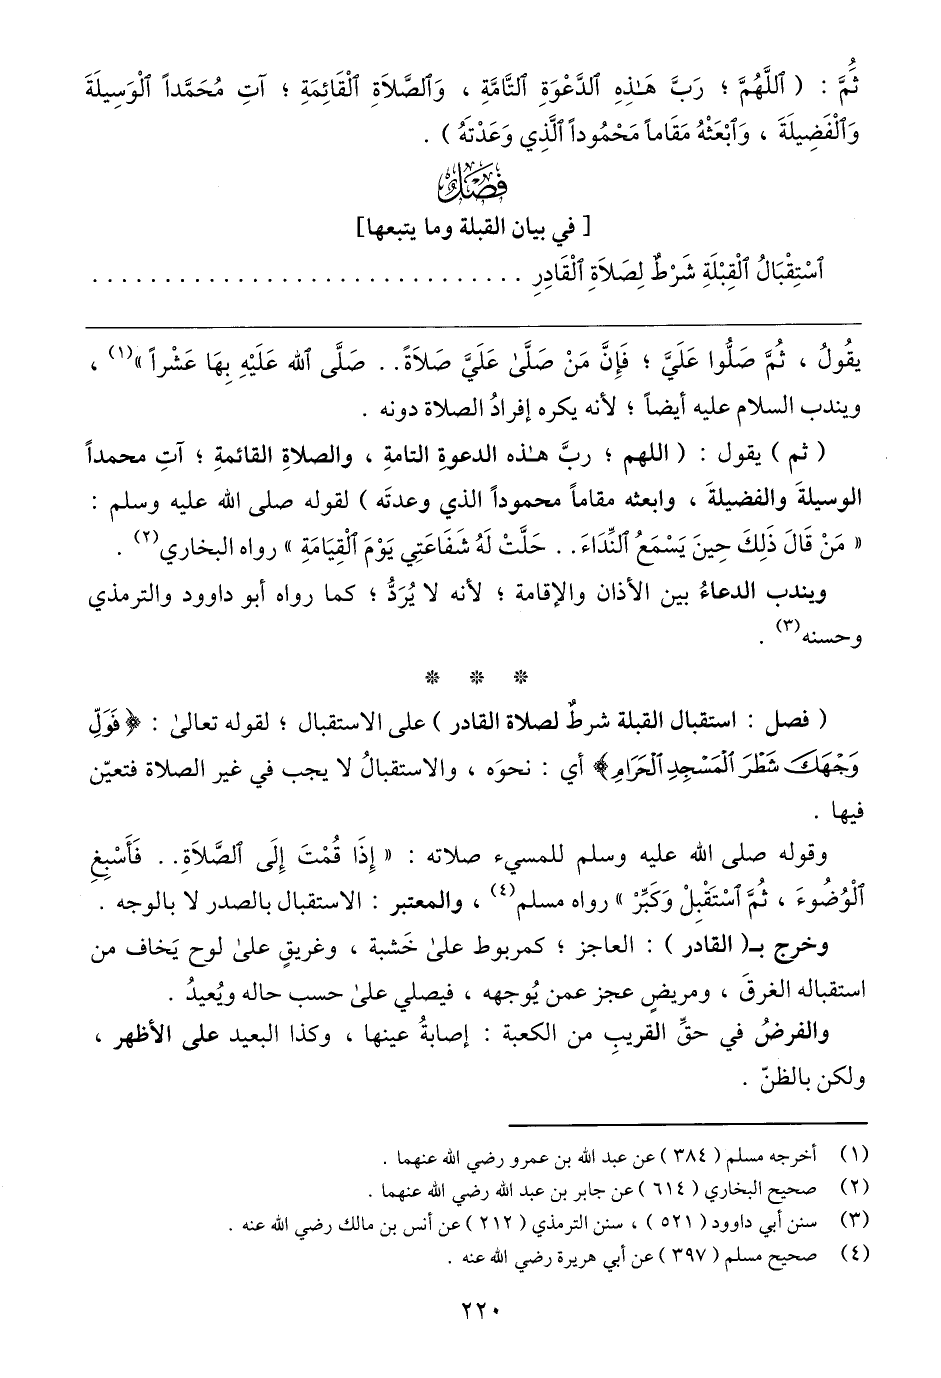 ثُمَّ : ( ٱللَّهُمَّ ؛ رَبَّ هَـٰذِهِ ٱلدَّعْوَةِ ٱلتَّامَّةِ ، وَٱلصَّلاَةِ ٱلْقَائِمَةِ ؛ آتِ مُحَمَّداً ٱلْوَسِيلَةَ
وَٱلْفَضِيلَةَ ، وَٱبْعَثْهُ مَقَاماً مَحْمُوداً ٱلَّذِي وَعَدْتَهُ ) .
فصل
[ في بيان القبلة وما يتبعها]
ٱسْتِقْبَالُ ٱلْقِبْلَةِ شَرْطٌ لِصَلاَةِ ٱلْقَادِرِ . . . . . . . . . . . . . . . . . . . . . . . . . . . . . .
يقُولُ ، ثُمَّ صَلُّوا عَلَيَّ ؛ فَإِنَّ مَنْ صَلَّىٰ عَلَيَّ صَلاَةً. . صَلَّى ٱلله عَلَيْهِ بِهَا عَشْراً »(١) ،
ويندب السلام عليه أيضاً ؛ لأنه يكره إفرادُ الصلاة دونه .
( ثم ) يقول : ( اللهم ؛ ربَّ هـٰذه الدعوةِ التامةِ ، والصلاةِ القائمةِ ؛ آتِ محمداً
الوسيلةَ والفضيلةَ ، وابعثه مقاماً محموداً الذي وعدتَه ) لقوله صلى الله عليه وسلم :
« مَنْ قَالَ ذَلِكَ حِينَ يَسْمَعُ ٱلنِّدَاءَ. . حَلَّتْ لَهُ شَفَاعَتِي يَوْمَ ٱلْقِيَامَةِ » رواه البخاري(٢) .
ويندب الدعاءُ بين الأذان والإقامة ؛ لأنه لا يُرَدُّ ؛ كما رواه أبو داوود والترمذي
وحسنه(٣) .
* * *
( فصل : استقبال القبلة شرطٌ لصلاة القادر ) على الاستقبال ؛ لقوله تعالىٰ : ﴿ فَوَلِّ
وَجْهَكَ شَطْرَ ٱلْمَسْجِدِ ٱلْحَرَامِ﴾ أي : نحوَه ، والاستقبالُ لا يجب في غير الصلاة فتعيّن
فيها .
وقوله صلى الله عليه وسلم للمسيء صلاته : « إِذَا قُمْتَ إِلَى ٱلصَّلاَةِ. . فَأَسْبِغِ
ٱلْوُضُوءَ ، ثُمَّ ٱسْتَقْبِلْ وَكَبِّرْ » رواه مسلم(٤) ، والمعتبر : الاستقبال بالصدر لا بالوجه .
وخرج بـ( القادر ) : العاجز ؛ كمربوط علىٰ خَشبة ، وغريقٍ علىٰ لوح يَخاف من
استقباله الغرقَ ، ومريضٍ عجز عمن يُوجهه ، فيصلي علىٰ حسب حاله ويُعيدُ .
والفرضُ في حقِّ القريبِ من الكعبة : إصابةُ عينها ، وكذا البعيد على الأظهر ،
ولكن بالظنّ .
(١) أخرجه مسلم ( ٣٨٤ ) عن عبد الله بن عمرو رضي الله عنهما .
(٢) صحيح البخاري ( ٦١٤ ) عن جابر بن عبد الله رضي الله عنهما .
(٣) سنن أبي داوود ( ٥٢١ ) ، سنن الترمذي ( ٢١٢ ) عن أنس بن مالك رضي الله عنه .
(٤) صحيح مسلم ( ٣٩٧ ) عن أبي هريرة رضي الله عنه .
٢٢٠